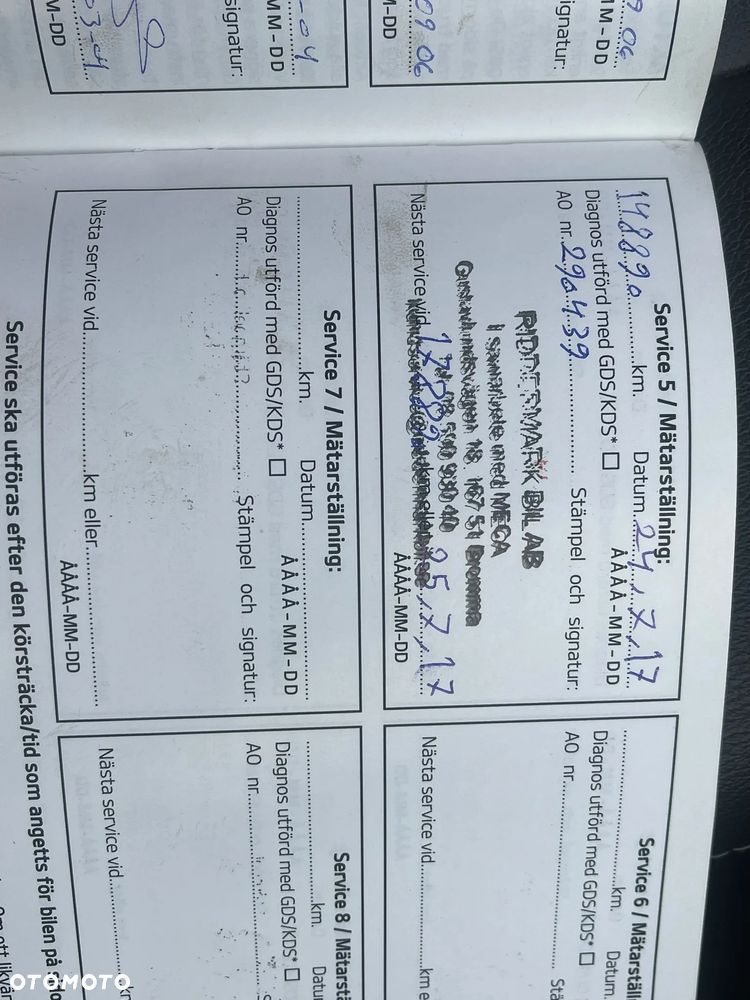 09 06
MM-DD
signatur:
09 06
M-DD
-04
MM-DD
signatur:
M-DD
Service 5 / Mätarställning:
148890 km. Datum 24,7,17
ÅÅÅÅ-MM-DD
Diagnos utförd med GDS/KDS* ☐
AO nr. 290439 Stämpel och signatur:
RIDDERMARK BIL AB
I samarbete med MECA
18, 167 51 Bromma
08 590 930 40
Nästa service vid 25,7,17
ÅÅÅÅ-MM-DD
Service 6 / Mätarställ
km. Datum
Diagnos utförd med GDS/KDS* ☐
AO nr. Stä
Nästa service vid km e
Service 7 / Mätarställning:
km. Datum
ÅÅÅÅ-MM-DD
Diagnos utförd med GDS/KDS* ☐
AO nr. Stämpel och signatur:
Nästa service vid km eller
ÅÅÅÅ-MM-DD
Service 8 / Mätarstä
km. Datu
Diagnos utförd med GDS/KDS* ☐
AO nr. S
Nästa service vid km
Service ska utföras efter den körsträcka/tid som angetts för bilen på
OTOMOTO